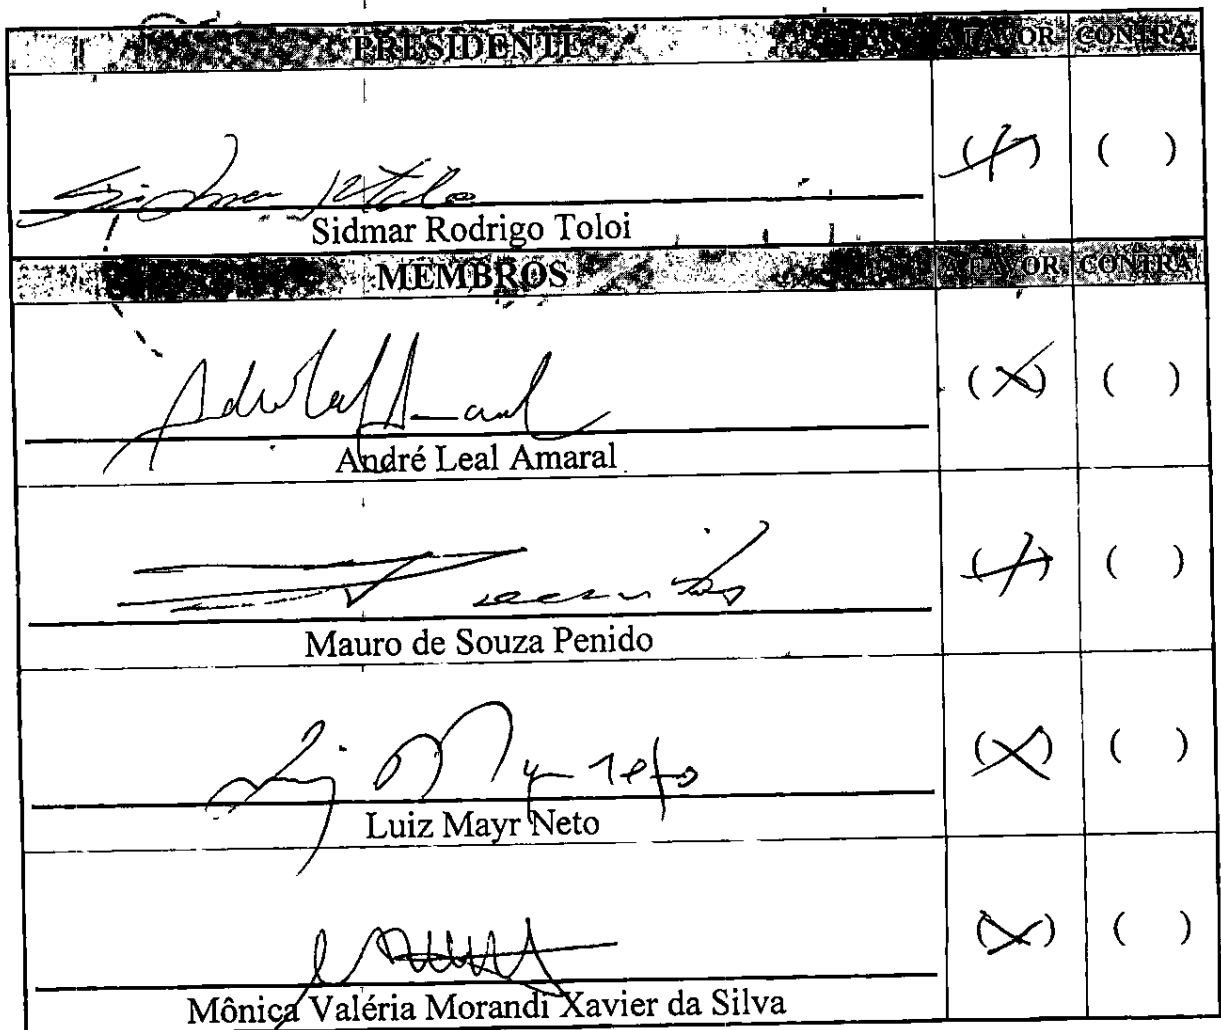 PRESIDENTE A FAVOR CONTRA
Sidmar (X) ( )
Sidmar Rodrigo Toloi
MEMBROS A FAVOR CONTRA
Leal Amaral (X) ( )
André Leal Amaral
(X) ( )
Mauro de Souza Penido
Luiz Mayr Neto (X) ( )
Luiz Mayr Neto
(X) ( )
Mônica Valéria Morandi Xavier da Silva